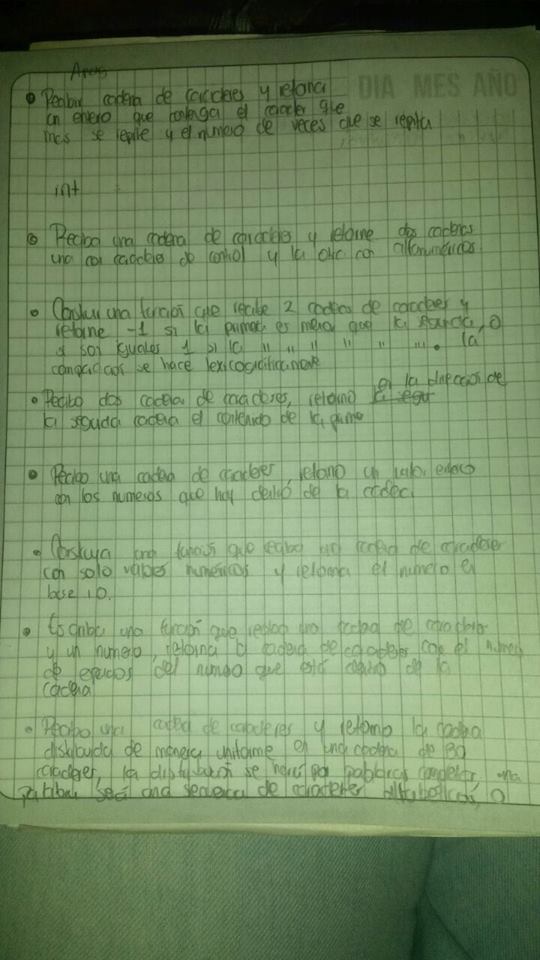 DIA MES AÑO
Recibir cadena de caracteres y retorna
un entero que contenga el caracter que
mas se repite y el numero de veces que se repita
int
Recibo una cadena de caracteres y retorne dos cadenas
una con caracteres de control y la otra con alfanumericos
Construir una funcion que recibe 2 cadenas de caracteres y
retorne -1 si la primera es menor que la segunda, 0
si son iguales 1 si la " " " " " . la
se hace lexicograficamente
Recibo dos cadena de caracteres, retorno en la direccion de
la segunda cadena el contenido de la prime
Recibo una cadena de caracteres, retorno un entero
con los numeros que hay dentro de la
Construya una funcion que reciba una cadena de caracteres
con solo valores numericos y retorna el numero en
base 10.
Escriba una funcion que reciba una cadena de caracteres
y un numero, retorna la cadena de caracteres con el numero
de del numero que está dentro de la
cadena
Recibo una cadena de caracteres y retorno la cadena
distribuida de manera uniforme en una cadena de 80
caracteres, la se por palabras una
palabra será una secuencia de caracteres alfabeticos, o